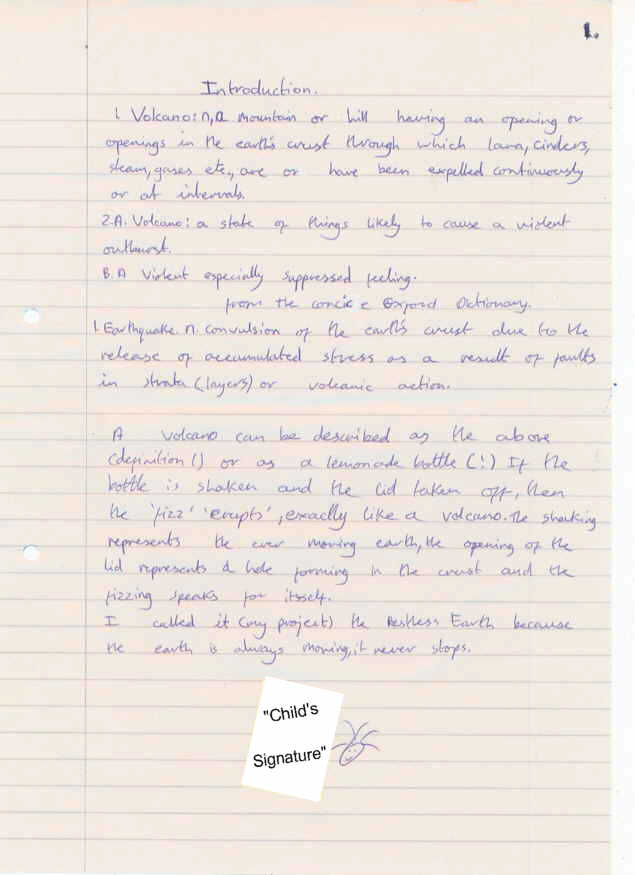 1.
Introduction.
1. Volcano: n, a mountain or hill having an opening or
openings in the earth's crust through which lava, cinders,
steam, gases etc, are or have been expelled continuously
or at intervals.
2.A. Volcano: a state of things likely to cause a violent
outburst.
B. A violent especially suppressed feeling.
from the concise Oxford Dictionary.
1. Earthquake. n. convulsion of the earth's crust due to the
release of accumulated stress as a result of faults
in strata (layers) or volcanic action.
A volcano can be described as the above
(definition 1) or as a lemonade bottle (!) If the
bottle is shaken and the lid taken off, then
the 'fizz' 'erupts', exactly like a volcano. The shaking
represents the ever moving earth, the opening of the
lid represents a hole forming in the crust and the
fizzing speaks for itsself.
I called it (my project) the Restless Earth because
the earth is always moving, it never stops.
"Child's
Signature"